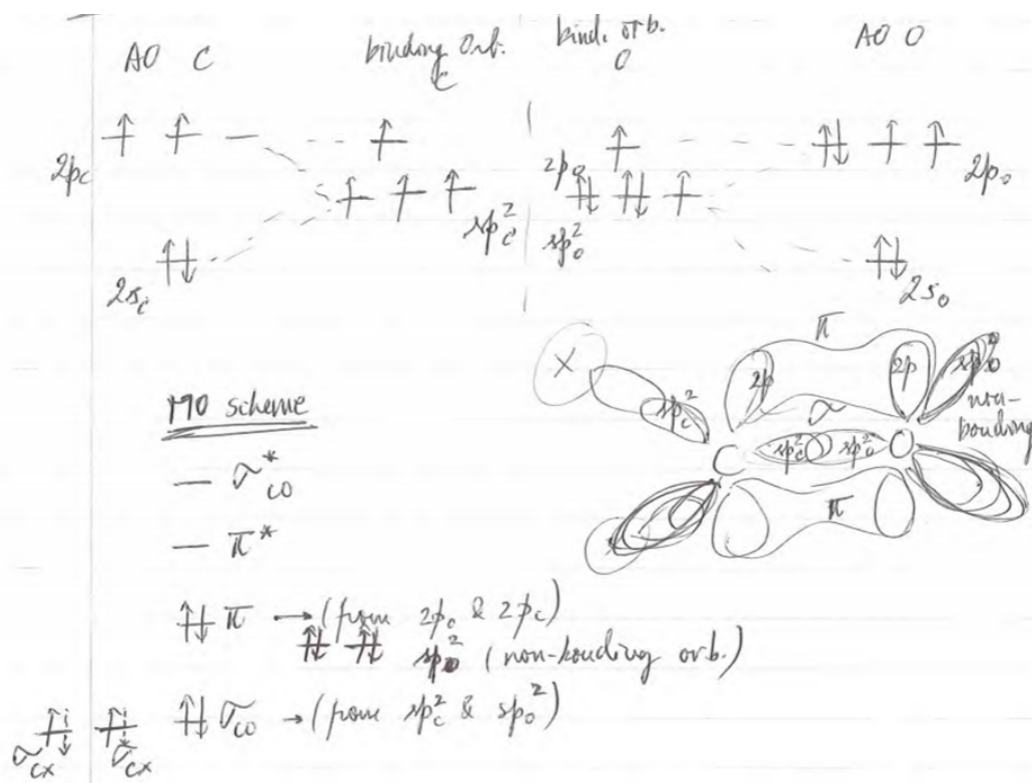 AO C
binding Orb. C
bind. orb. O
AO O
2pc
sp²c
2po
sp²o
2po
2sc
2so
π
X
sp²c
2p
2p
sp²o
non-bonding
σ
C
sp²c
sp²o
O
π
MO scheme
— σ*co
— π*
π → (from 2po & 2pc)
sp²o (non-bonding orb.)
σco → (from sp²c & sp²o)
σcx
σcx